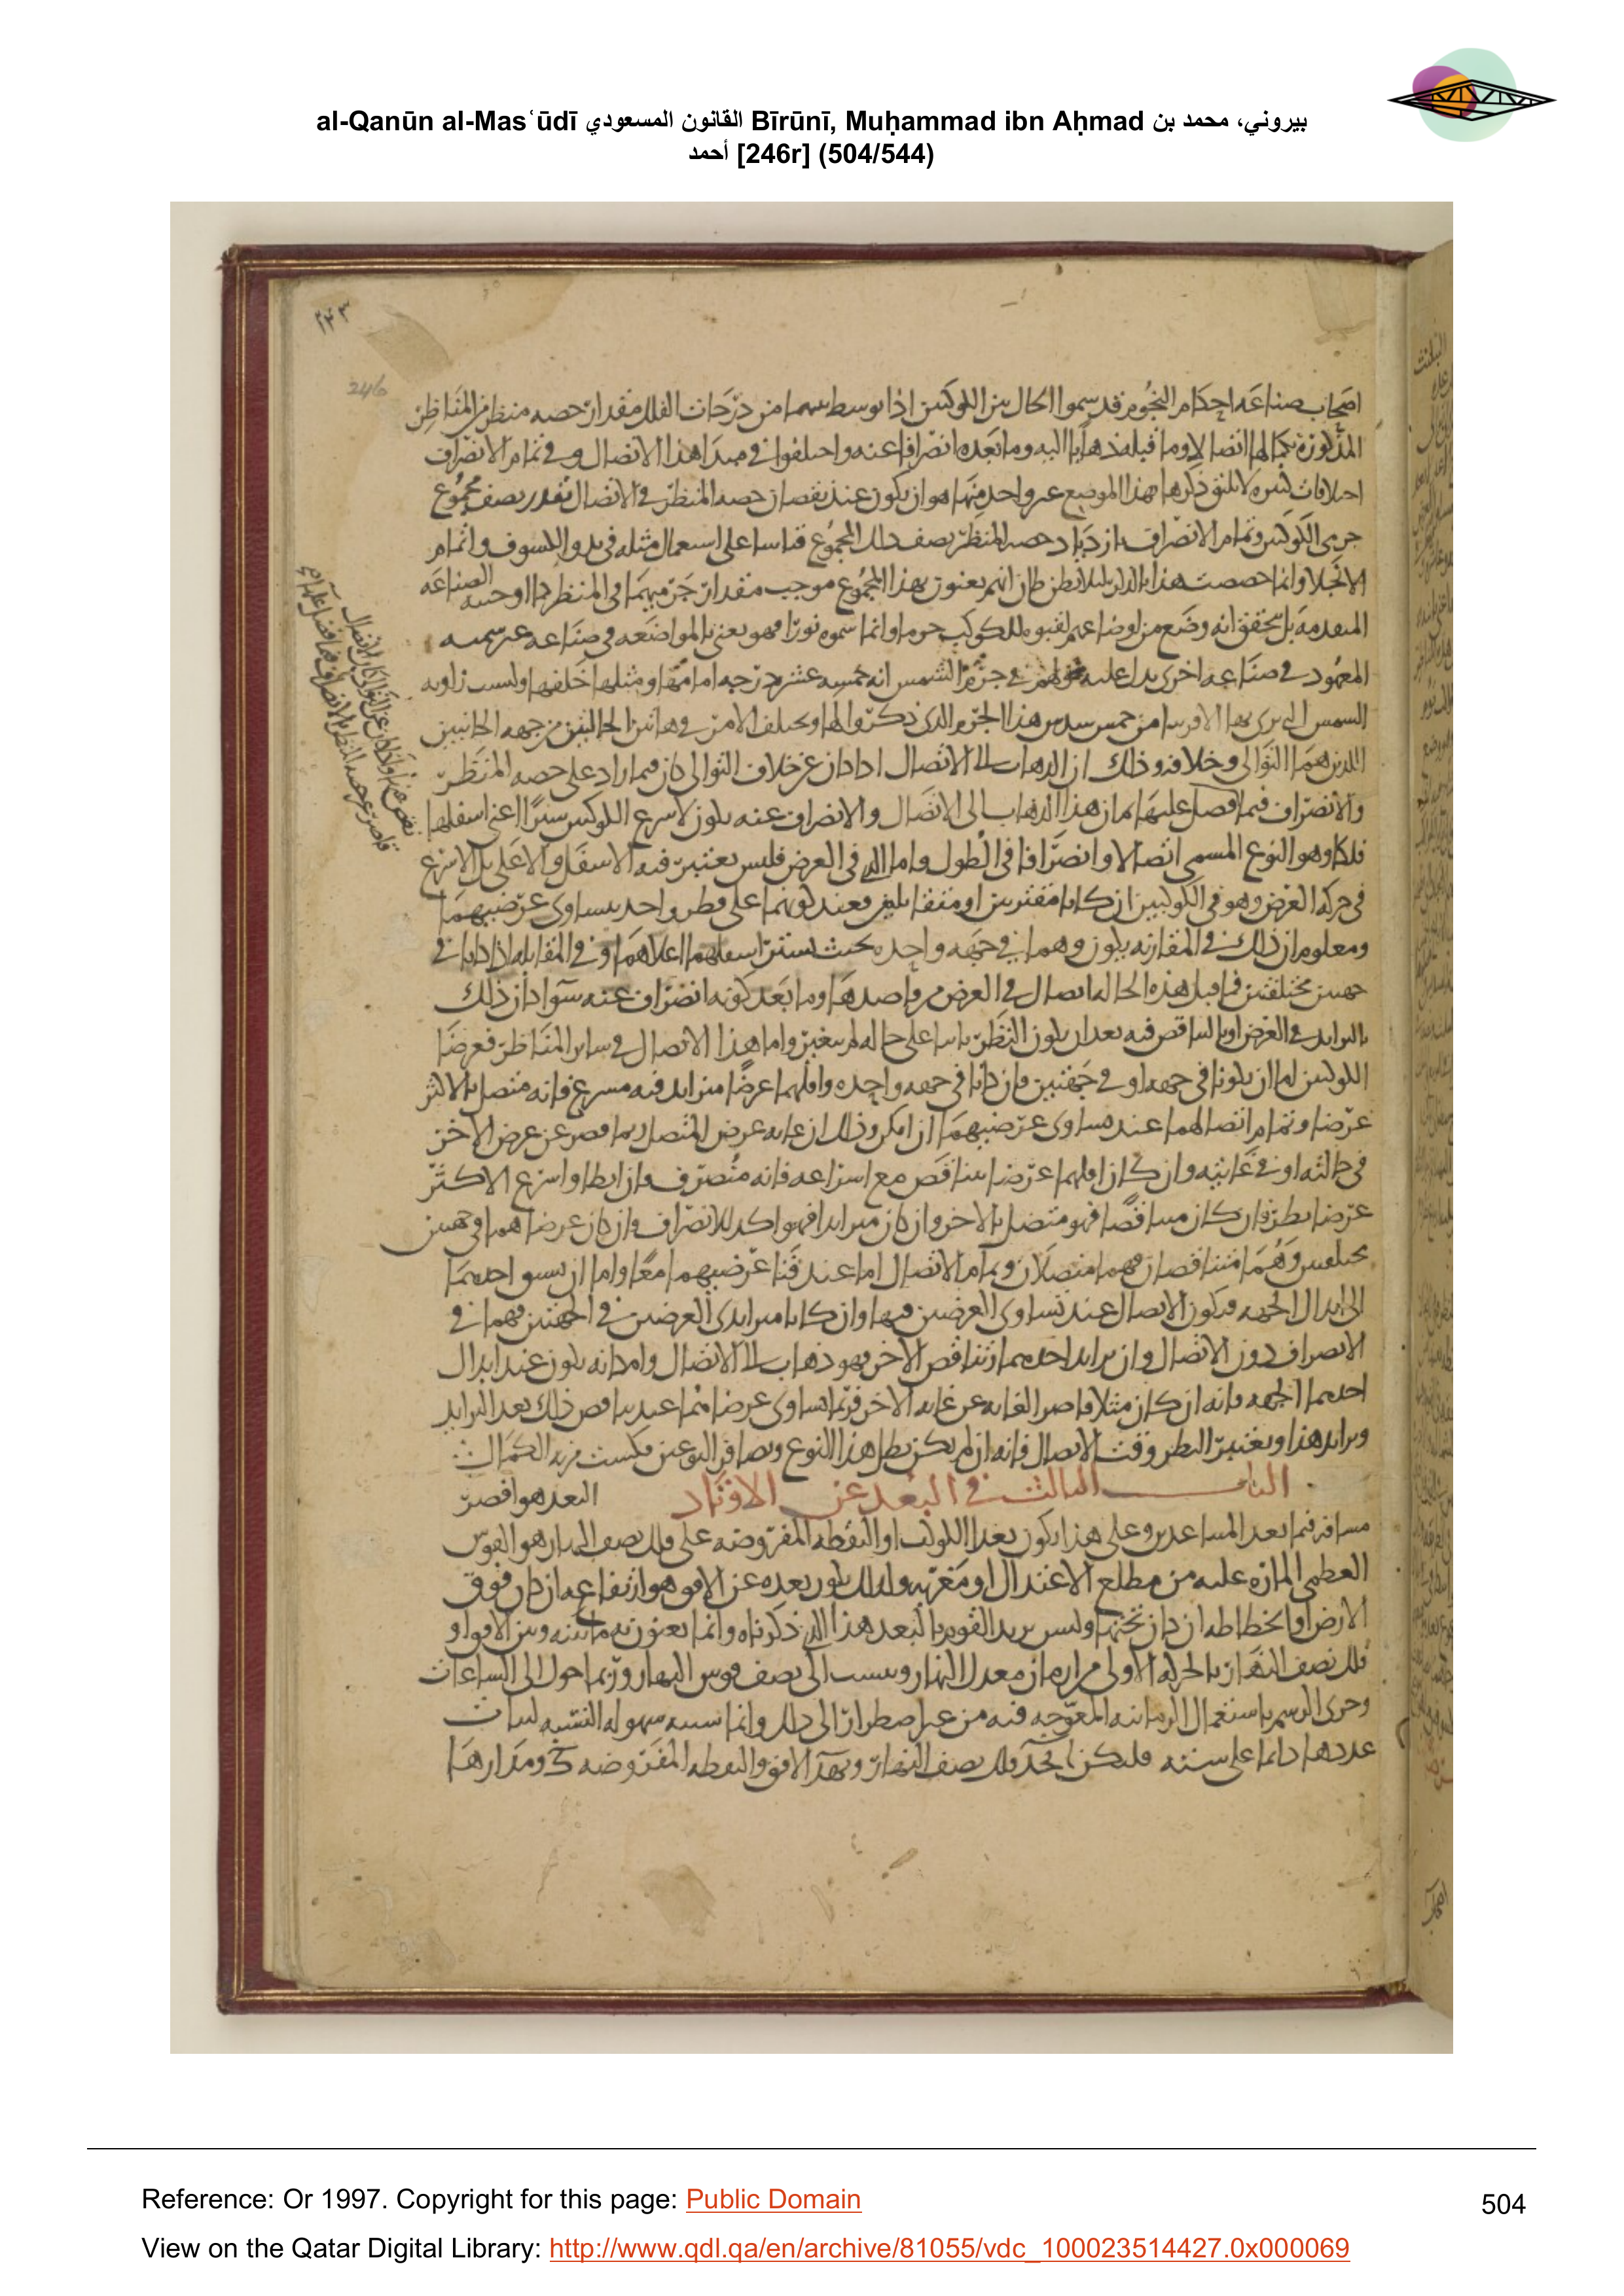 al-Qanūn al-Masʿūdī القانون المسعودي Bīrūnī, Muḥammad ibn Aḥmad بيروني، محمد بن
أحمد [246r] (504/544)
٢٤٣
246
اصحاب صناعه احكام النجوم قد سموا الحال بين الكوكبين اذا توسط بينهما من درجات الفلك مقدار حصه منظر من المناظر
المذكورة بكمالها اتصالا وما قبله ذهابا اليه وما بعده انصرافا عنه واختلفوا في مبدا هذا الاتصال وفي تمام الانصراف
اختلافات كثيره لا يليق ذكرها بهذا الموضع غير واحد منها هو ان يكون عند نقصان حصه المنظر في الاتصال بقدر نصف مجموع
جرمي الكوكبين وتمام الانصراف بازدياد حصه المنظر نصف ذلك المجموع قياسا على استعمال مثله في بدو الكسوف واتمام
الانجلا وانما خصصت هذا بالذكر لئلا يظن ظان انهم يعنون بهذا المجموع موجب مقدار جرميهما في المنظر كما اوجبته الصناعه
المتقدمة بل يتحقق انه وضع من اوضاعهم لقبوه للكوكب جرما وانما سموه نورا فهو يعني بالمواضعه في صناعه غير سميه
المعهود في صناعه اخرى يدل عليه قولهم في جرم الشمس انه خمسه عشر درجه امامها ومثلها خلفها وليست زاويه
الشمس التي يرى بها الا قريبا من خمس سدس هذا الجرم الذي ذكروا لها ويختلف الامر في هاتين الحالتين من جهه الجانبين
اللذين هما التوالي وخلافه وذلك ان الذهاب الى الاتصال اذا كان عن خلاف التوالي كان فيما زاد على حصه المنظر
والانصراف فيما فصل عليها ثم ان هذا الذهاب الى الاتصال والانصراف عنه يكون لاسرع الكوكبين سيرا اعني اسفلهما
فلكا وهو النوع المسمى اتصالا وانصرافا في الطول واما الذي في العرض فليس يعتبر فيه الاسفل والاعلى بل الاسرع
في حركه العرض وهو في الكوكبين ان كانا مقترنين او متقابلين فعند كونهما على قطر واحد يتساوى عرضيهما
ومعلوم ان ذلك في المقارنه يكون وهما في جهه واحده بحيث يستتر اسفلهما اعلاهما وفي المقابله اذا كانا في
جهتين مختلفتين فما قبل هذه الحاله اتصال في العرض من قاصدها وما بعد كونه انصراف عنه سوا كان ذلك
بالتزايد في العرض او بالتناقص فيه بعد ان يكون النظر ثابتا على حاله لم يتغير واما هذا الاتصال في ساير المناظر فعرضا
الكوكبين اما ان يكونا في جهه او في جهتين فان كانا في جهه واحده واقلهما عرضا متزايد فيه مسرع فانه متصل بالاكثر
عرضا وتمام اتصالهما عند تساوي عرضيهما ان امكن وذلك ان غايه عرض المتصل ربما قصر عن عرض الاخر
في حالته او في غايته وان كان اقلهما عرضا متناقص مع اسراعه فانه منصرف وان ابطا واسرع الاكثر
عرضا نظر فان كان متناقصا فهو متصل بالاخر وان كان متزايدا فهو اكد للانصراف وان كان عرضاهما في جهتين
مختلفتين وهما متناقصان فهما متصلان وتمام الاتصال اما عند فنا عرضيهما معا واما ان يسبق احدهما
الى ابدال الجهه فيكون الاتصال عند تساوي العرضين فيها وان كانا متزايدي العرضين في الجهتين فهما في
الانصراف دون الاتصال وان تزايد احدهما وتناقص الاخر فهو ذهاب الى الاتصال وامكانه يكون عند ابدال
احدهما الجهه فانه ان كان مثلا قاصر الغايه عن غايه الاخر فربما تساوى عرضاهما عند تناقص ذلك بعد التزايد
وتزايد هذا ويعتبر النظر وقت الاتصال فانه ان لم يكن بطل هذا النوع وتضافر النوعين مكسب مزيد الكمال
الباب الثالث في البعد عن الاوتاد البعد هو اقصر
مسافه فيما بعد المساعدين وعلى هذا يكون بعد الكوكب او النقطه المفروضه على فلك نصف النهار هو القوس
العظمى الماره عليه من مطلع الاعتدال او مغربه ولذلك يكون بعده عن الافق هو ارتفاعه ان كان فوق
الارض او انحطاطه ان كان تحتها وليس يريد القوم بالبعد هذا الذي ذكرناه وانما يعنون به ما بينه وبين الافق او
فلك نصف النهار بالحركه الاولى من ازمان معدل النهار وينسب الى نصف قوس النهار وربما حول الى الساعات
وجرى الرسم باستعمال الزمانيه المعوجه فيه من غير اضطرار الى ذلك وانما سببه سهوله النسبه لثبات
عددها دائما على سته فليكن ا ب ج د فلك نصف النهار و ب ه د الافق والنقطه المفروضه ك ومدارها
Reference: Or 1997. Copyright for this page: Public Domain
504
View on the Qatar Digital Library: http://www.qdl.qa/en/archive/81055/vdc_100023514427.0x000069